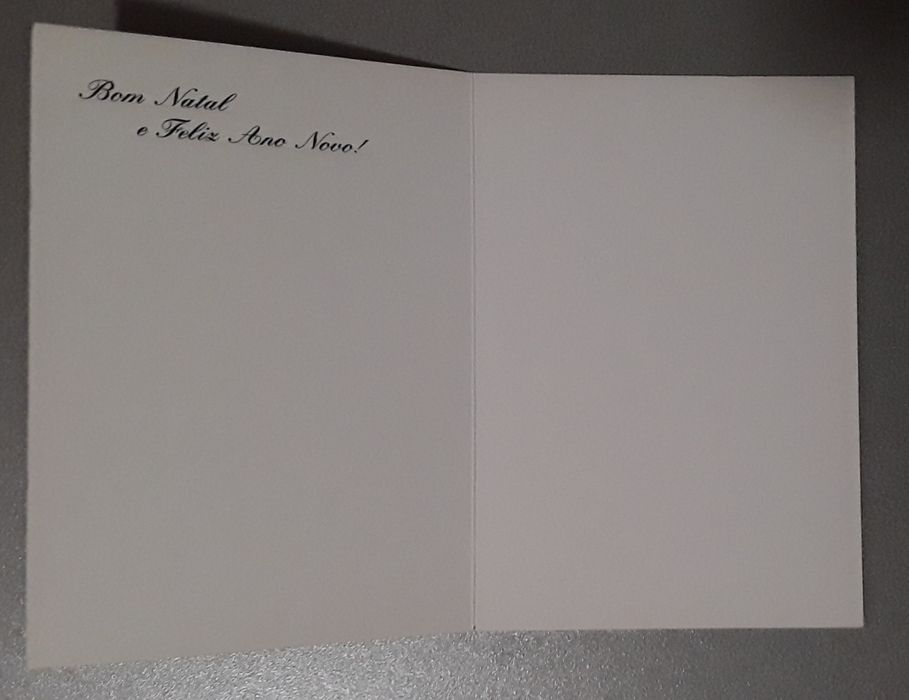 Bom Natal
e Feliz Ano Novo!